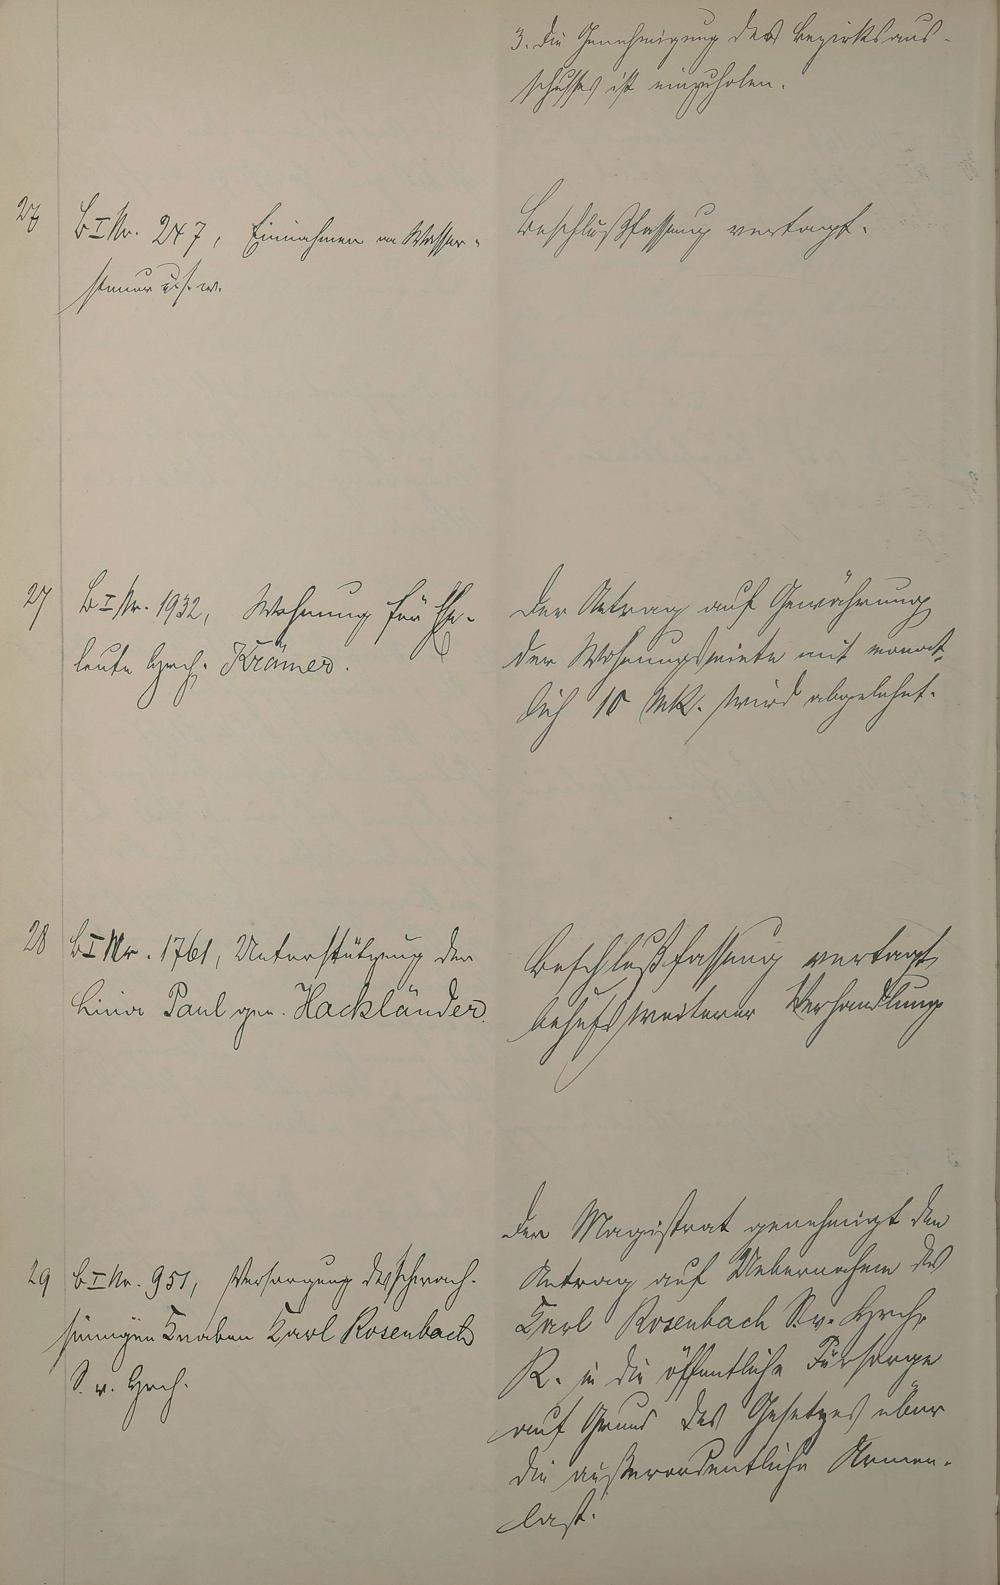 3. Die Genehmigung des Bezirksaus-
schusses ist einzuholen.
26
B I Nr. 247, Einnahmen an Wasser-
steuer u.s.w.
Beschlußfassung vertagt.
27
B I Nr. 1932, Wohnung für Ehe-
leute Hrch. Krämer.
Der Antrag auf Gewährung
der Wohnungsmiete mit monat-
lich 10 Mk. wird abgelehnt.
28
B I Nr. 1761, Unterstützung der
Lina Paul gen. Hackländer.
Beschlußfassung vertagt
behufs weiterer Verhandlung
29
B I Nr. 951, Versorgung des schwach-
sinnigen Knaben Karl Rosenbach
S. v. Hrch.
Der Magistrat genehmigt den
Antrag auf Uebernahme des
Karl Rosenbach S. v. Hrch.
R. in die öffentliche Fürsorge
auf Grund des Gesetzes über
die außerordentliche Armen-
last.